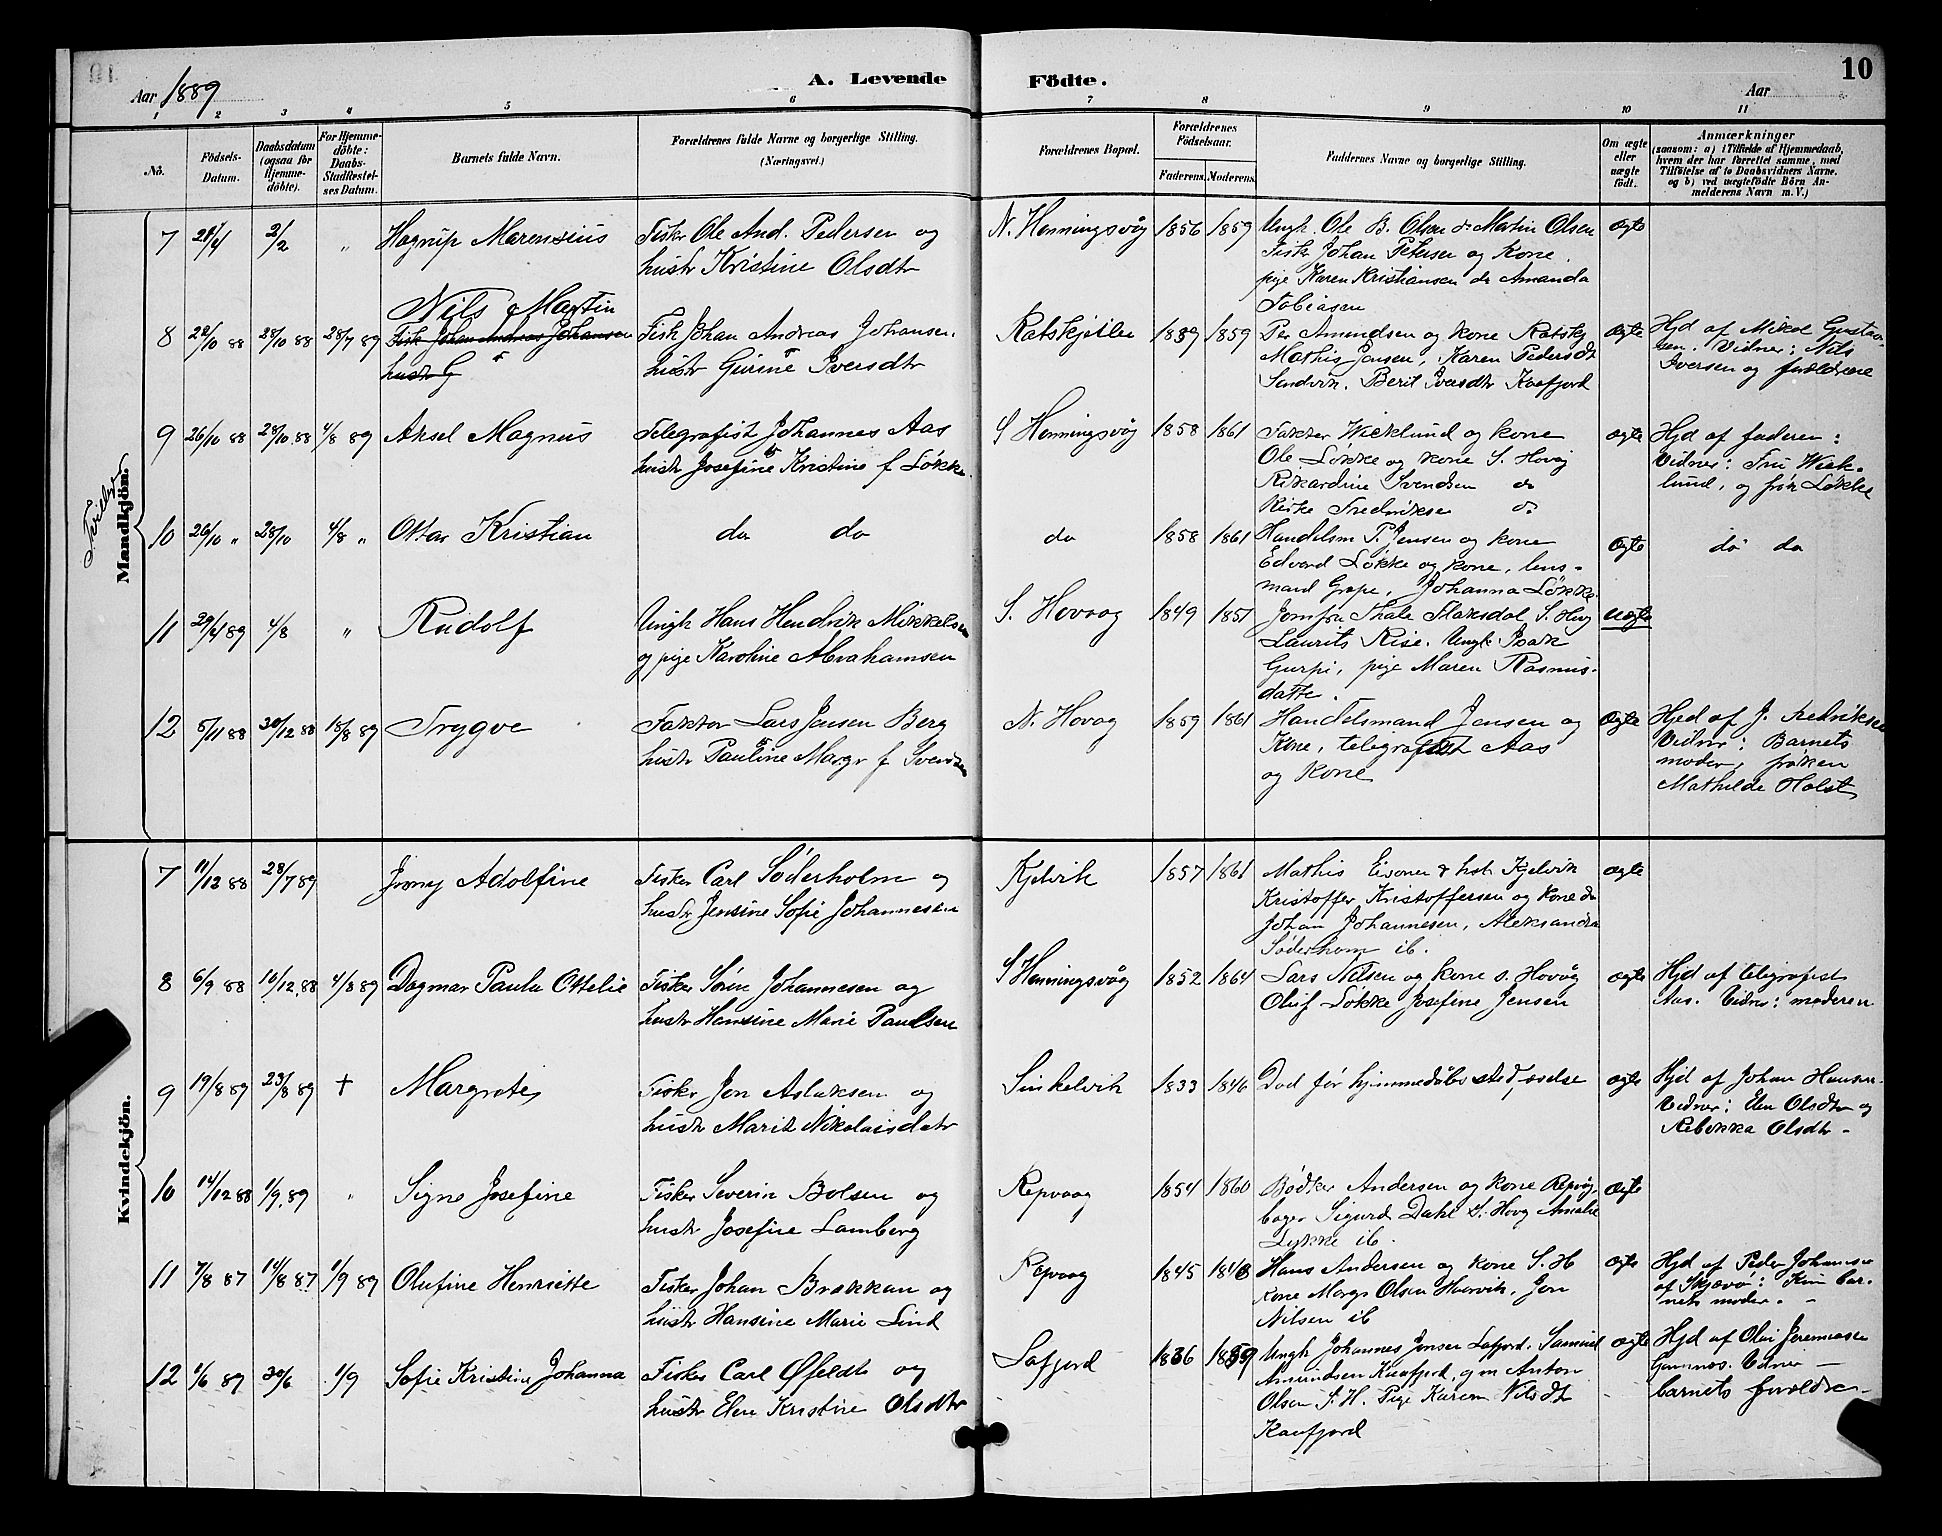 10
Aar 1889 A. Levende Födte. Aar
1 2 3 4 5 6 7 8 9 10 11
No.
Födsels-Datum.
Daabsdatum (ogsaa for Hjemme-döbte).
For Hjemme-döbte: Daabs-Stadfæstel-ses Datum.
Barnets fulde Navn.
Forældrenes fulde Navne og borgerlige Stilling. (Næringsvei.)
Forældrenes Bopæl.
Forældrenes Födselsaar.
Faderens. Moderens.
Faddernes Navne og borgerlige Stilling.
Om ægte eller uægte födt.
Anmærkninger
(saasom: a) i Tilfælde af Hjemmedaab, hvem der har forrettet samme, med Tilföielse af to Daabsvidners Navne, og b) ved uægtefödte Börn An-melderens Navn m. V.)
Mandkjön.
7 2/2 " Hagrup Marensius Fisker Ole And. Pedersen og N. Honningsvåg 1856 1859 Ungk. Ole B. Olsen & Martin Olsen ægte
hustr Kristine Olsdtr Fisk Johan Petersen og Kone.
pige Karen Kristiansen & Amanda
Tobiasen
Nils Martin
8 28/10 88 28/7 89 Fisk Johan Andreas Johansen Fisk Johan Andreas Johansen. 1859 1859 Per Amundsen og kone ægte Hjd af Mikal Gustav-
hustr G hustr Gurine Iversdtr Mathis Jensen, Karen Pedersdt sen. Vidner: Nils
Sandvik. Berit Iversdtr Kaafjord Iversen og forældrene
9 26/10 88 28/10 88 4/8 89 Aksel Magnus Telegrafist Johannes Aas S Honningsvåg 1858 1861 Faktor Wicklund og kone ægte Hjd af faderen:
hustr Josefine Kristine f Løkke. Ole Løkke og kone S. Hovåg Vidner: Fru Wick-
Rikardine Svendsen do lund, og frk Løkke
Fredriksen do
Tvillinger
10 26/10 " 28/10 4/8 " Ottar Kristian do do do 1858 1861 Handelsm P. Jensen og kone ægte do do
Edvard Løkke og kone, lens-
mand Grape, Johanna Løkke.
11 29/4 89 4/8 " Rudolf Ungk Hans Hendrik Mikkelsen S. Hovaag 1849 1851 Jomfru Thale S. Hvg uægte
og pige Karoline Abrahamsen Laurits Rise. Ungk Isak
pige Maren Rasmus-
datter.
12 5/11 88 30/12 88 18/8 89 Trygve Faktor Lars Jensen Berg N. Hovag 1859 1861 Handelsmand Jensen og ægte Hjed af J. Fredriksen
hustr Pauline Margr f Svendsen Kone, telegrafist Aas Vidner: Barnets
og kone moder, frøken
Mathilde Holst
Kvindekjön.
7 11/12 88 28/7 89 Jenny Adolfine Fisker Carl Söderholm og Kjelvik 1857 1861 Mathis & hst. Kjelvik ægte
hustr Jensine Sofie Johannesen Kristoffer Kristoffersen og kone do
Johan Johannesen, Aleksandra
Søderhom ib.
8 6/9 88 16/12 88 4/8 89 Dagmar Paula Ottelie Fisker Sörin Johannesen og S Honningsvåg 1852 1864 Lars Nilsen og kone S. Hovåg ægte Hjd af telegrafist
hustr Hansine Marie Paulsen Oluf Løkke Josefine Jensen Aas. Vidner: moderen
9 19/8 89 23/8 89 + Margrete Fisker Jon Aslaksen og Sinkelvik 1833 1846 Död før hjemmedåbs stadfæstelse ægte Hjd af Johan Hansen.
hustr Marit Nikolaisdatr Vidner: Elen Olsdtr og
Rebekka Olsdtr -
10 14/12 88 1/9 89 " Signe Josefine Fisker Severin Bolsen og Repvaag 1854 1860 Bødker Andersen og kone Repvåg ægte
hustr Josefine Lamberg bager Sigurd Dahl S. Hovg Amalie
Lykke ib.
11 7/8 87 14/8 87 1/9 89 Olufine Henriette Fisker Johan Brakkan og Repvaag 1845 1848 Hans Andersen og kone S. H ægte Hjd af Peder Johansen
hustr Hansine Marie Lind kone Margr Olsen Jon af Skjævø: Kun bar-
Nilsen ib nets moder. -
12 1/6 89 30/6 1/9 Sofie Kristine Johanna Fisker Carl Øfeldt og Lafjord 1836 1859 Ungk Johannes Jonsen Lafjord. Samuel ægte Hjd af Olai Jeremiasen
hustr Elen Kristine Olsdtr Amundsen Kaafjord, g m Anton Gamnes. Vidner -
Olsen S. H. Pige Karen Nilsdt barnets forældre -
Kaafjord